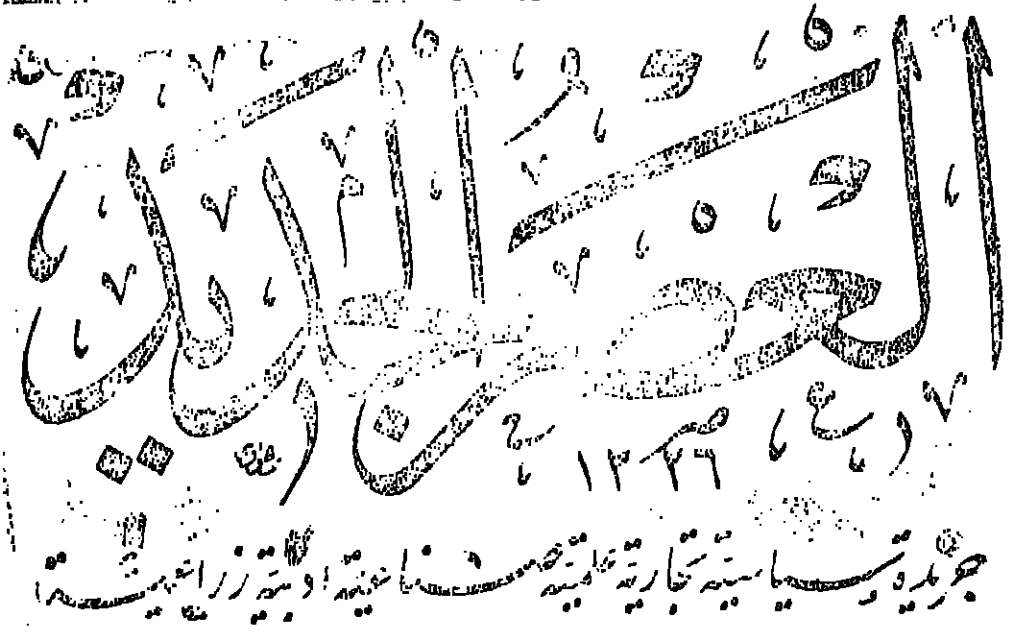 العصر الجديد
جريدة سياسية تجارية علمية صناعية ادبية زراعية